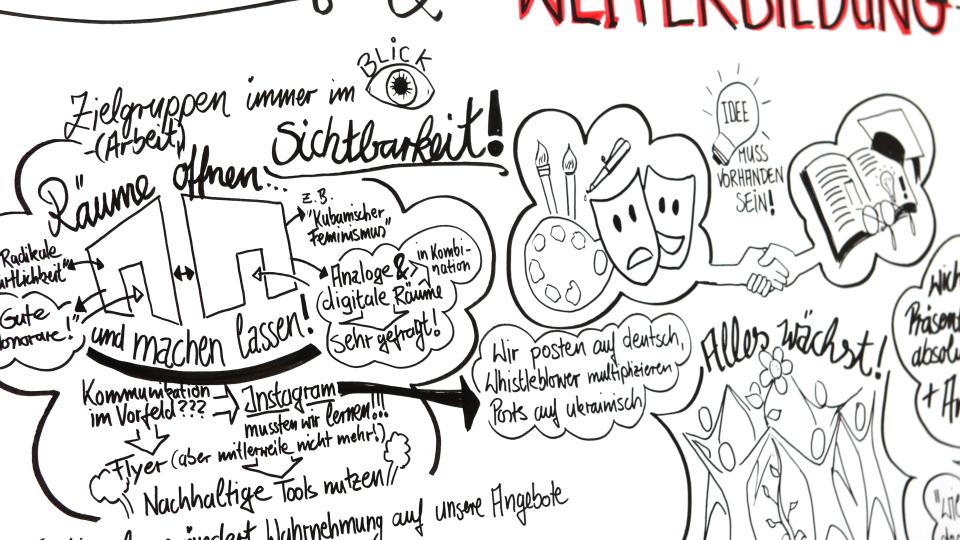 &
WEITERBILDUNG
BLICK
Zielgruppen immer im
(Arbeit)
Sichtbarkeit!
Räume öffnen...
z.B.
"Kubanischer
Feminismus"
"Radikale
Gute
Honorare!"
Analoge &
digitale Räume
in Kombi-
nation
Sehr gefragt!
und machen lassen!
Kommunikation
im Vorfeld???
Instagram
mussten wir lernen!!!
Flyer (aber mittlerweile nicht mehr!)
Nachhaltige Tools nutzen
Wahrnehmung auf unsere Angebote
Wir posten auf deutsch,
Whistleblower multiplizieren
Posts auf ukrainisch
IDEE
MUSS
VORHANDEN
SEIN!
Alles wächst!